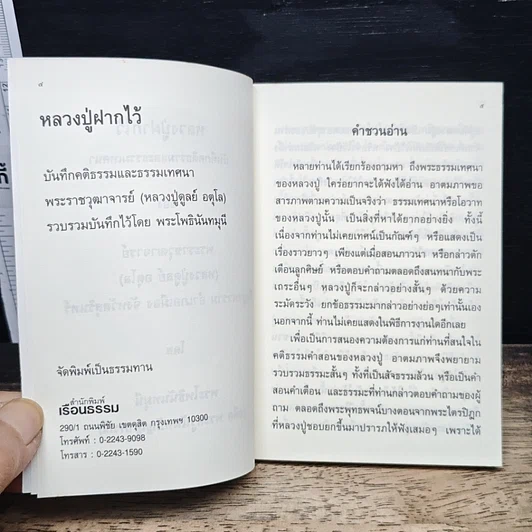 ๔
หลวงปู่ฝากไว้
บันทึกคติธรรมและธรรมเทศนา
พระราชวุฒาจารย์ (หลวงปู่ดูลย์ อตุโล)
รวบรวมบันทึกไว้โดย พระโพธินันทมุนี
จัดพิมพ์เป็นธรรมทาน
สำนักพิมพ์
เรือนธรรม
290/1 ถนนพิชัย เขตดุสิต กรุงเทพฯ 10300
โทรศัพท์ : 0-2243-9098
โทรสาร : 0-2243-1590
๕
คำชวนอ่าน
หลายท่านได้เรียกร้องถามหา ถึงพระธรรมเทศนา
ของหลวงปู่ ใคร่อยากจะได้ฟังได้อ่าน อาตมภาพขอ
สารภาพตามความเป็นจริงว่า ธรรมเทศนาหรือโอวาท
ของหลวงปู่นั้น เป็นสิ่งที่หาได้ยากอย่างยิ่ง ทั้งนี้
เนื่องจากท่านไม่เคยเทศน์เป็นกัณฑ์ๆ หรือแสดงเป็น
เรื่องราวยาวๆ เพียงแต่เมื่อสอนภาวนา หรือกล่าวตัก
เตือนลูกศิษย์ หรือตอบคำถามตลอดถึงสนทนากับพระ
เถระอื่นๆ หลวงปู่ก็จะกล่าวอย่างสั้นๆ ด้วยความ
ระมัดระวัง ยกข้อธรรมะมากล่าวอย่างย่อๆเท่านั้นเอง
นอกจากนี้ ท่านไม่เคยแสดงในพิธีการงานใดอีกเลย
เพื่อเป็นการสนองความต้องการแก่ท่านที่สนใจใน
คติธรรมคำสอนของหลวงปู่ อาตมภาพจึงพยายาม
รวบรวมธรรมะสั้นๆ ทั้งที่เป็นสัจธรรมล้วน หรือเป็นคำ
สอนคำเตือน และธรรมะที่ท่านกล่าวตอบคำถามของผู้
ถาม ตลอดถึงพระพุทธพจน์บางตอนจากพระไตรปิฎก
ที่หลวงปู่ชอบยกขึ้นมาปรารภให้ฟังเสมอๆ เพราะได้